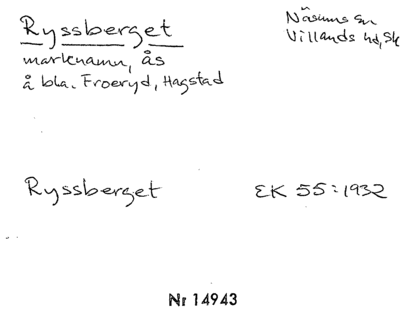 Ryssberget
Näsums sn
Villands hd, Sk
marknamn, ås
å bla. Froeryd, Hagstad
Ryssberget EK 55:1932
Nr 14943